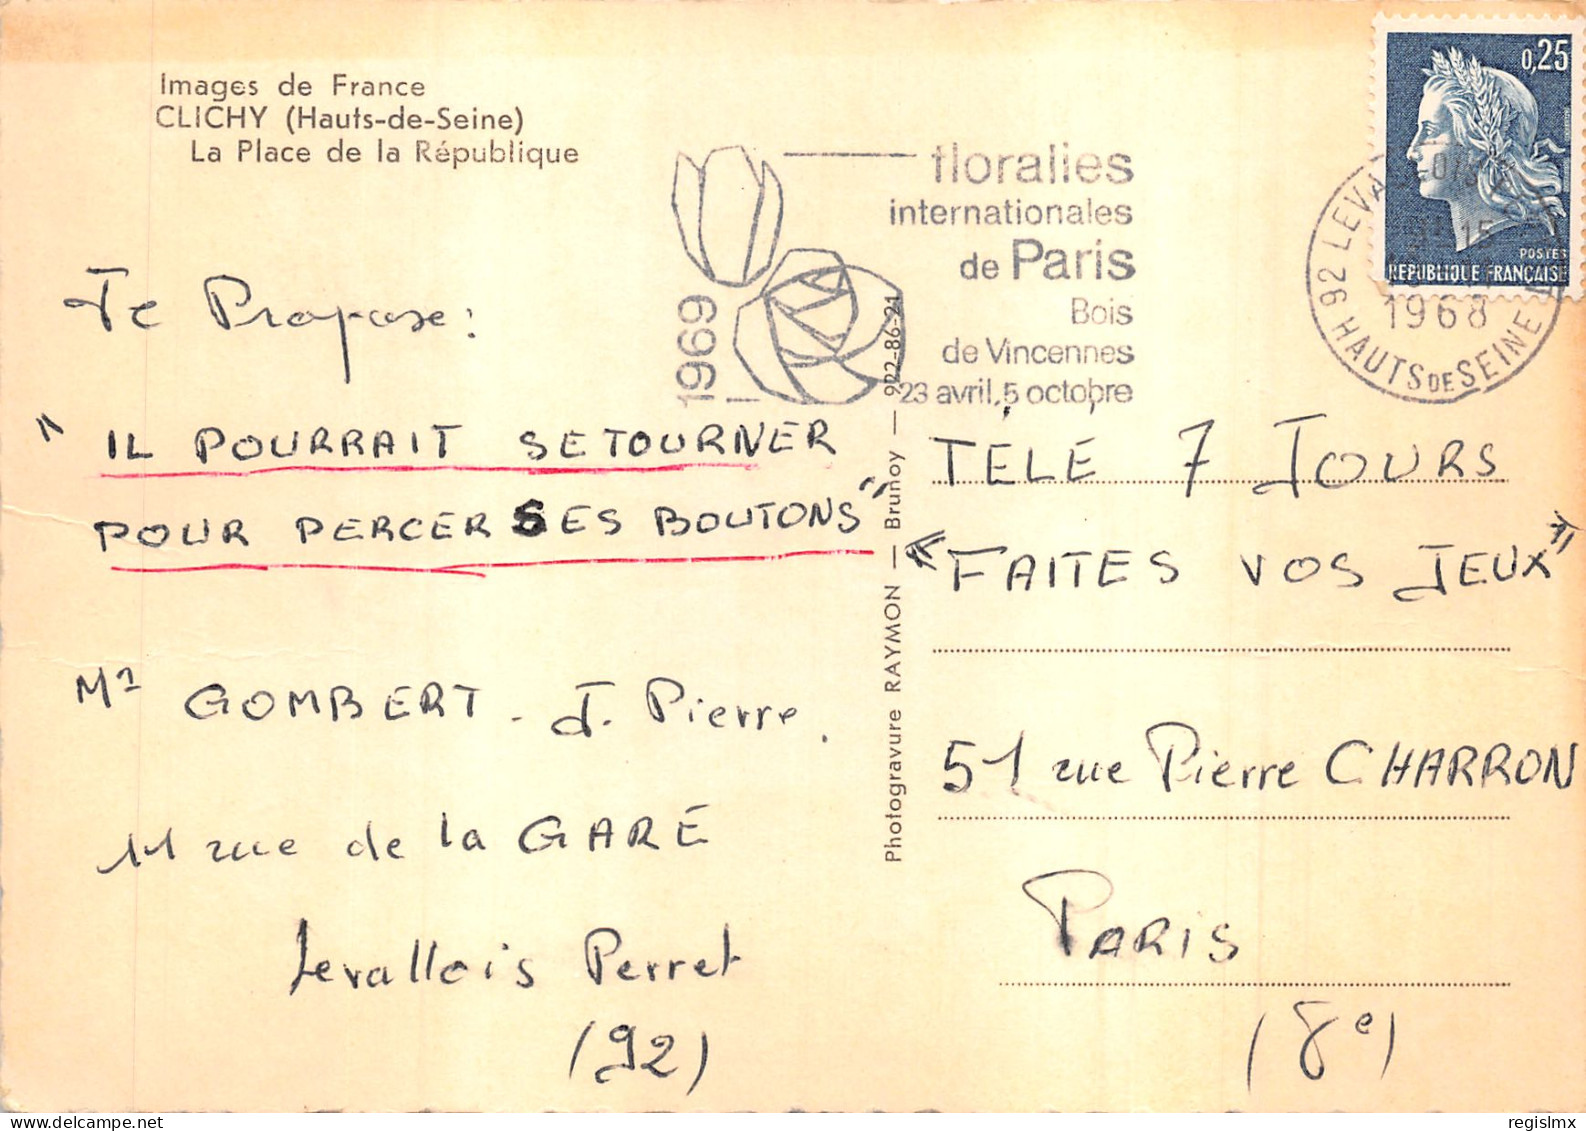 Images de France
CLICHY (Hauts-de-Seine)
La Place de la République
floralies
internationales
de Paris
Bois
de Vincennes
23 avril, 5 octobre
1969
0,25
POSTES
REPUBLIQUE FRANÇAISE
92 LEVALLOIS
HAUTS DE SEINE
15
1968
Je Propose:
" IL POURRAIT SE TOURNER
POUR PERCER SES BOUTONS"
Mr GOMBERT - J. Pierre.
11 rue de la GARE
Levallois Perret
(92)
Photogravure RAYMON — Brunoy — 922-86-21
TÉLÉ 7 JOURS
"FAITES VOS JEUX"
51 rue Pierre CHARRON
PARIS
(8e)
regislmx